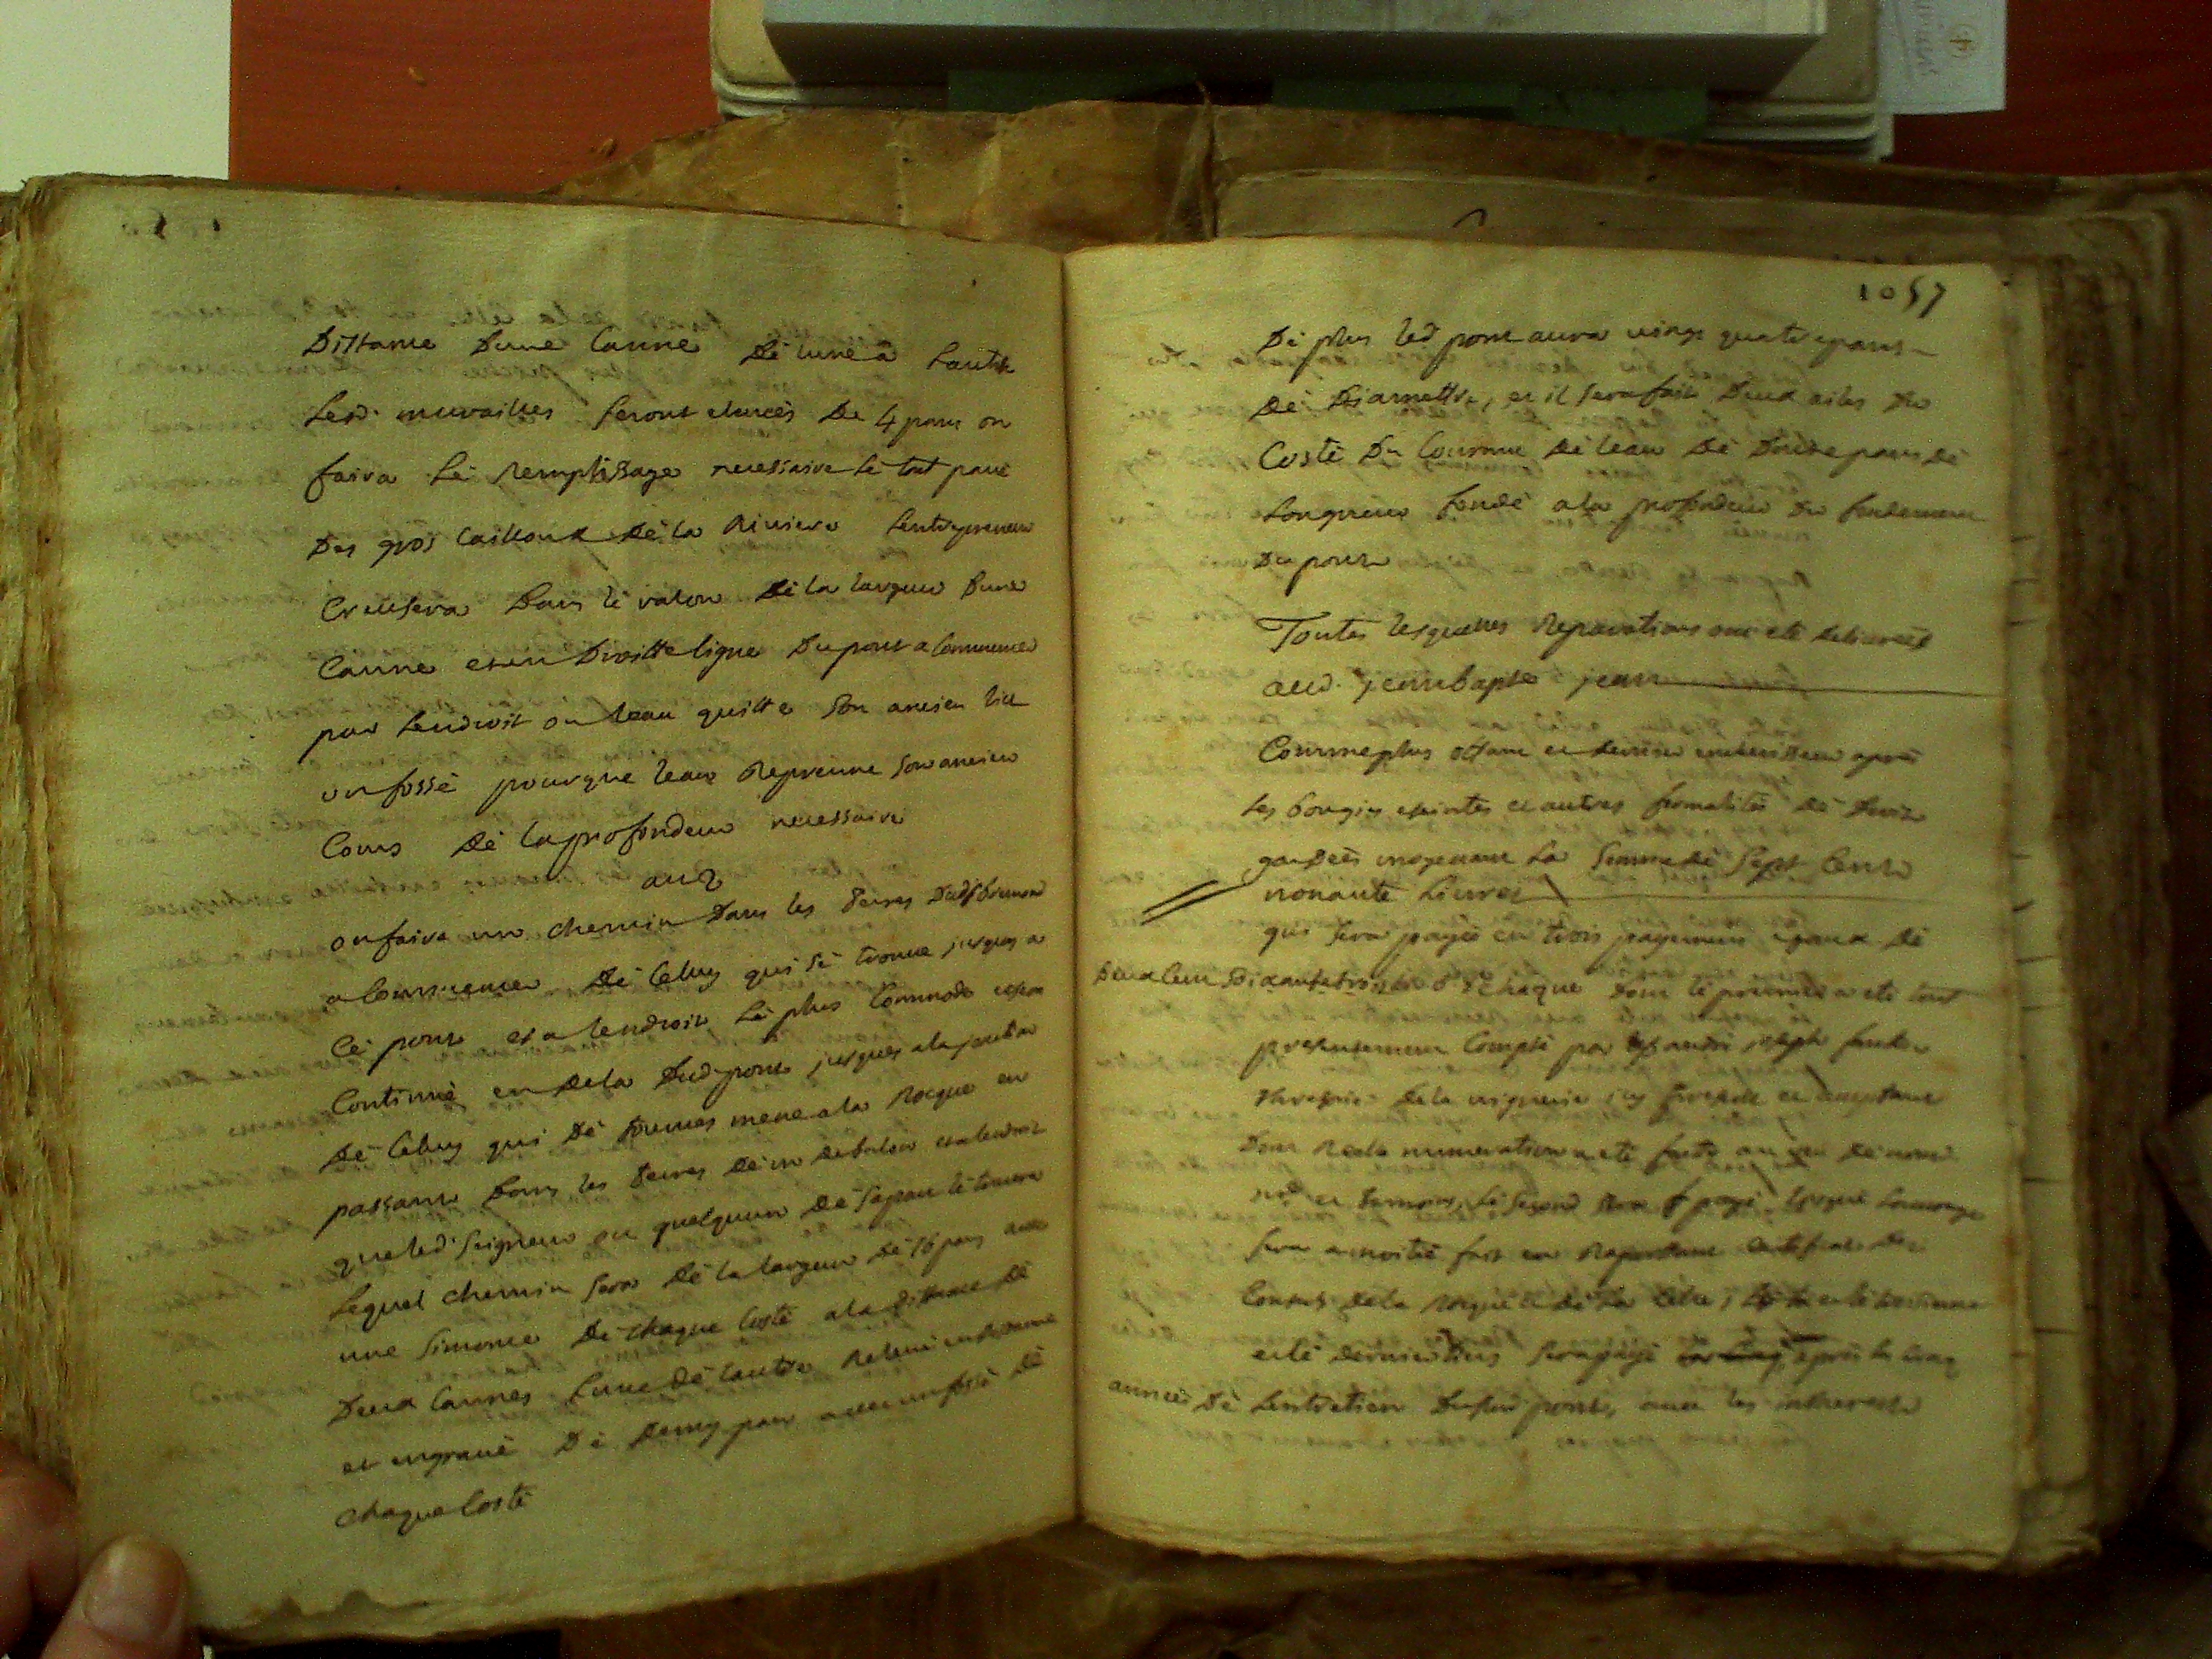 Distance Dune Canne Dè lune a Lautre
Lesd. murailles seront elancès De 4 pans on
faira Lè Remplissage necessaire Lè tout pavè
Des gros Cailloux Dè la Riviere Lentrepreneur
Creusera Dans lè valon Dè la largeur Dune
Canne et en Droitte ligne Du pont a Commencer
par Lendroit ou leau quitte Son ancien lit
un fossè pour que leau Reprenne son ancien
Cours Dè la profondeur necessaire
on faira un chemin Dans les Terres
a Commencer Dè Celuy qui sè trouve jusques a
Cè pont et a lendroit Lè plus Commode et sera
Continuè en Dela Dud. pont jusques a la
Dè Celuy qui Dè mene a la Roque en
passant Dans les Terres Dè et a lendroit
que led. Seigneur ou quelquun Dè sa part lè
Lequel chemin sera Dè la largeur Dè 16 pans avec
une Dè chaque Costè a la Distance Dè
Deux Cannes Lune Dè Lautre
et engravè Dè Demy pan avec un fossè Dè
chaque Costè
1057
Dè plus led. pont aura vingt quatre pans
Dè Diamettre, et il sera fait Deux ailes Du
Costè Du Courant Dè leau Dè Douze pans Dè
Longueur fondè a la profondeur Du fondement
Du pont
Toutes lesquelles Reparations ont etè delivrèes
aud. jean bapte jean
Comme plus offrant et dernier encherisseur aprés
les bougies eteintes et autres formalitès Dè Droit
gardèes moyenant La Somme Dè Sept Cent
nonante Livres
qui sera payèe en trois payemens egaux Dè
Deux Cent Soixante trois Chaque Dont lè premier a etè tout
presentement Comptè par andré joseph
Thresorier Dela viguerie icy present et acceptant
Dont Reelle numeration a etè faite au vu Dè nous
nore et temoins, Lè Segond sera payè lorsque Louvrage
sera a moitiè fait en Raportant Certificat Des
Consuls Dela
et lè dernier tiers sera payè aprés la cinq
annèe Dè Lentretien Dud. pont, avec les interests